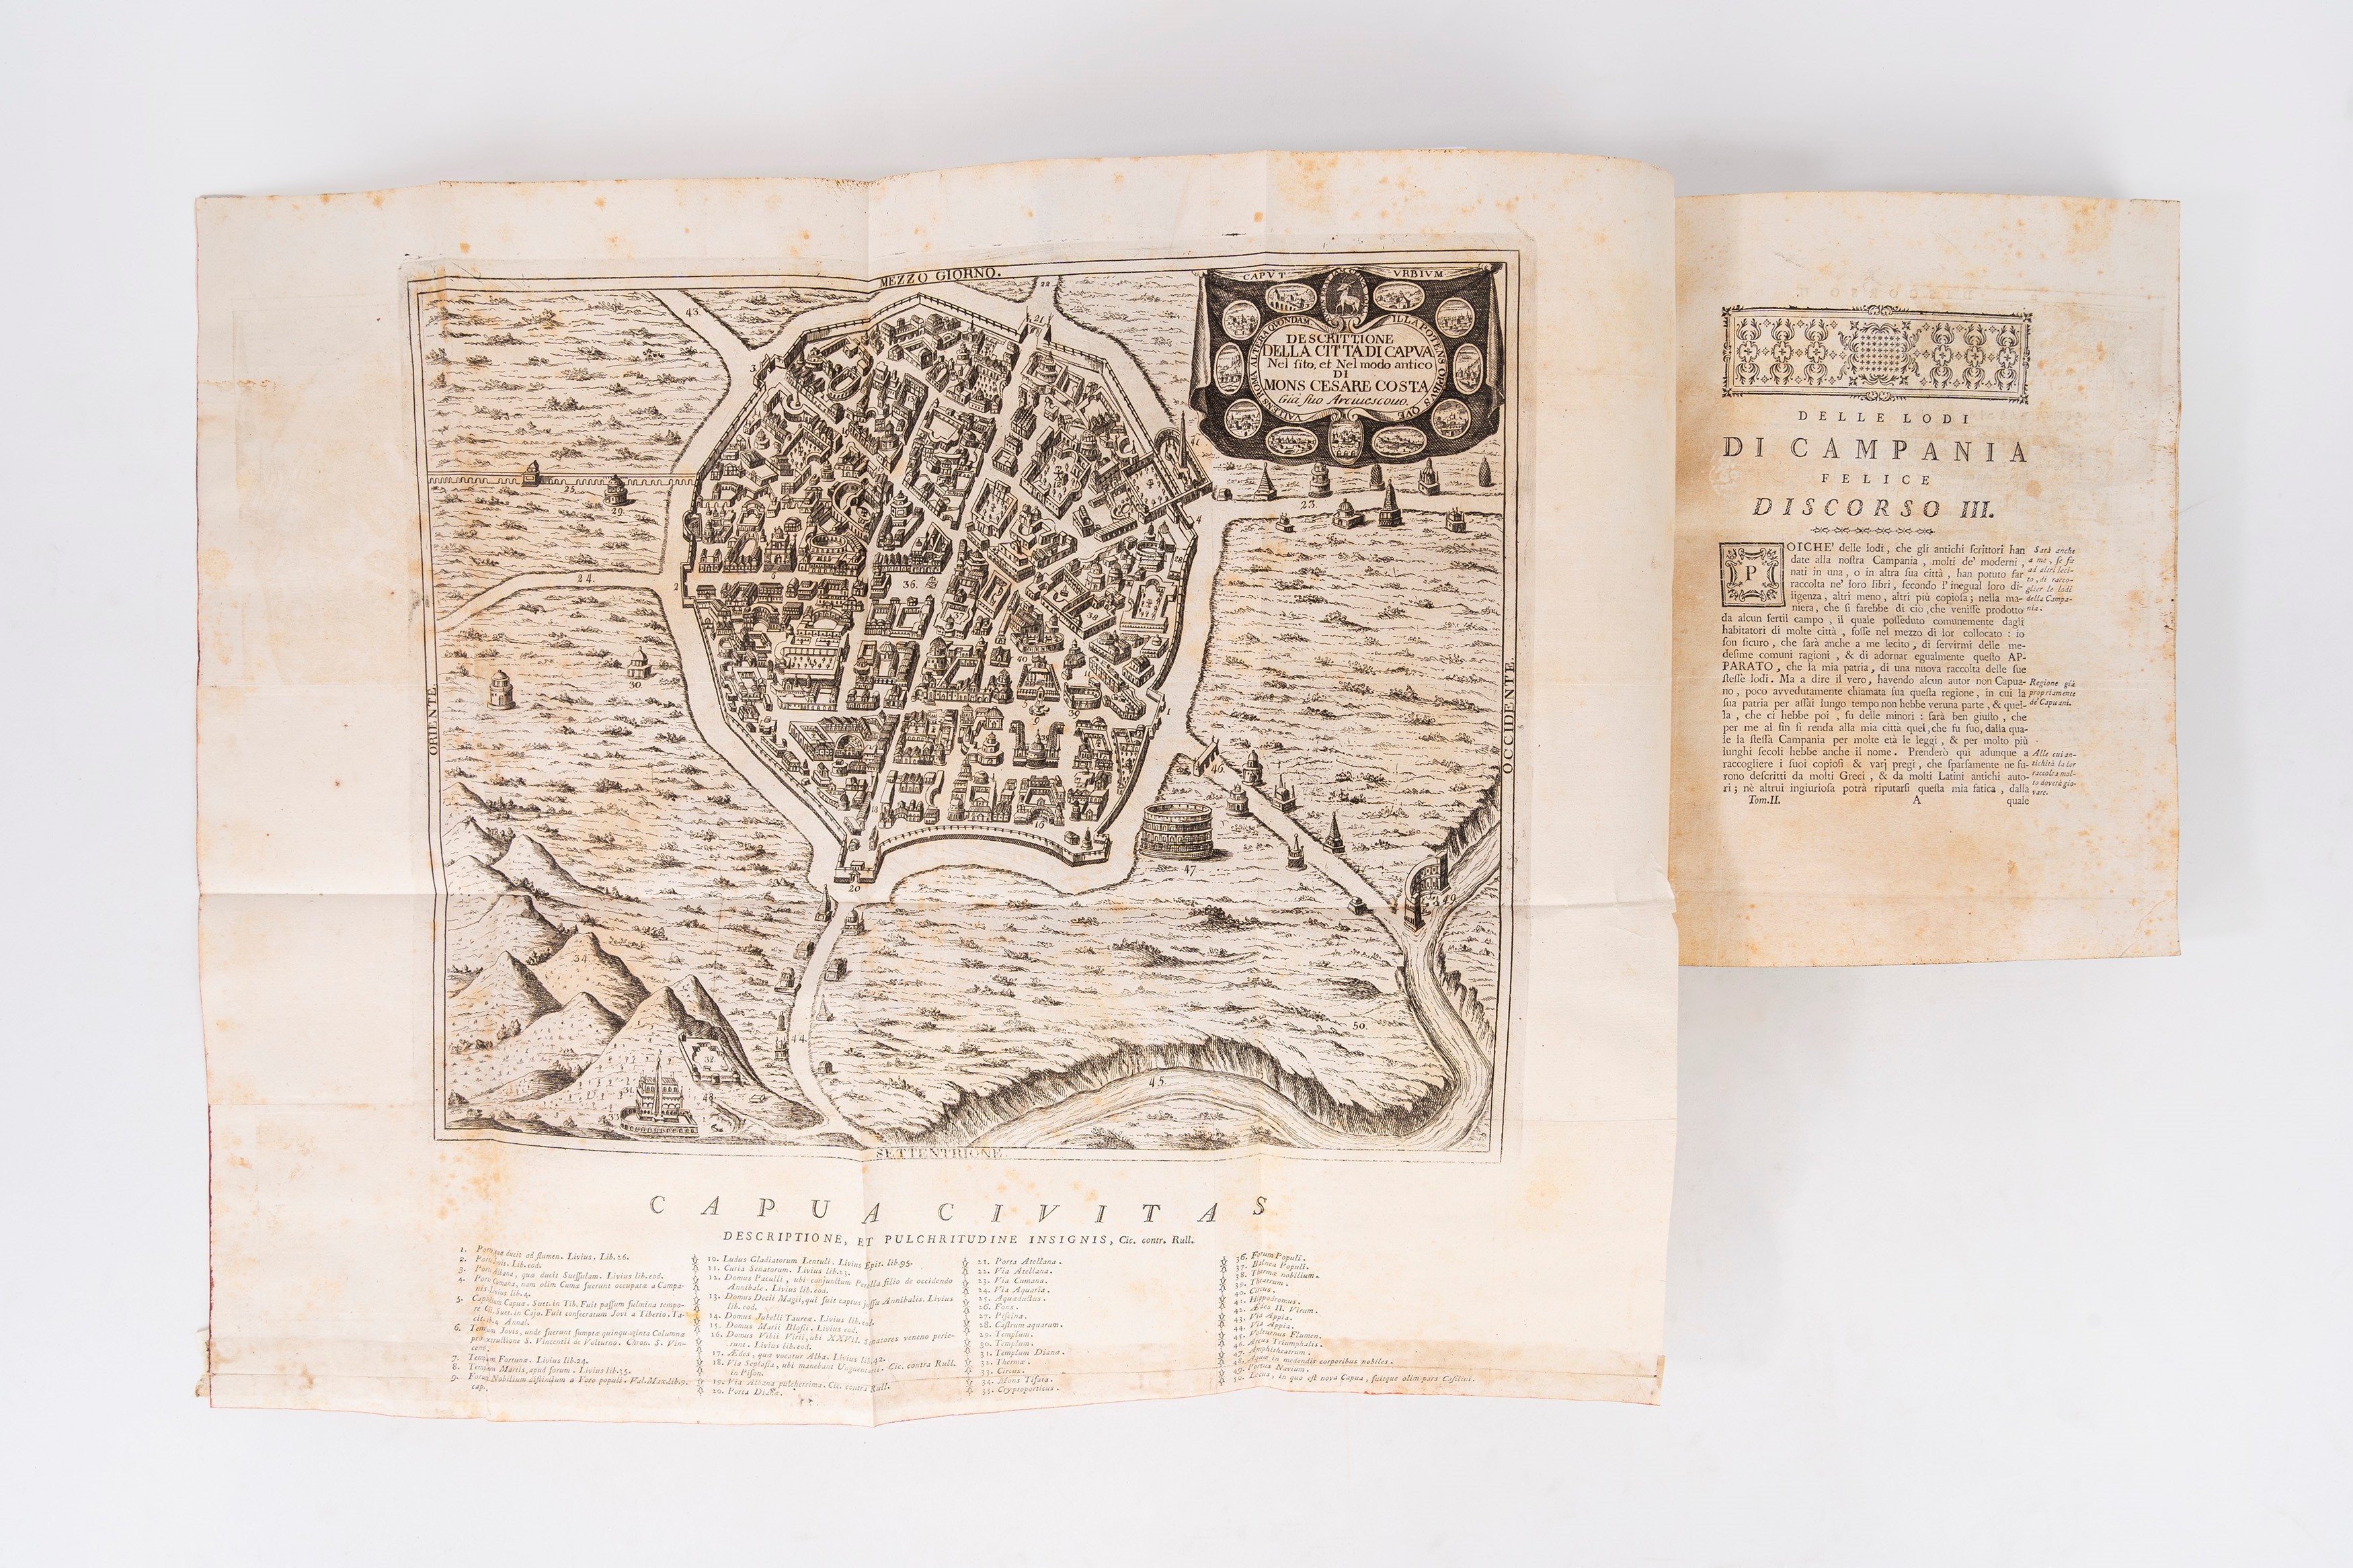 MEZZO GIORNO.
ORIENTE.
OCCIDENTE.
SETTENTRIONE
CAPVT VRBIVM
DESCRITTIONE
DELLA CITTÀ DI CAPVA
Nel sito, et Nel modo antico
DI
MONS CESARE COSTA
Già suo Arciuescouo.
43.
22
21
3
41
4
23.
25.
29.
24.
2
6
36.
38
30.
40
39
9
1
46.
18
16
20
47
49
34
50.
44.
45.
32
31
33
48
CAPUA CIVITAS
DESCRIPTIONE, ET PULCHRITUDINE INSIGNIS, Cic. contr. Rull.
1. ducit ad flumen. Livius. Lib. 26.
2. Lib. eod.
3. quæ ducit Suessulam. Livius lib. eod.
4. nam olim Cumæ fuerunt occupatæ a Campa-
nis. Livius lib. 4.
5. Capuæ. Suet. in Tib. Fuit passum fulmina tempo-
re Suet. in Cajo. Fuit consecratum Jovi a Tiberio. Ta-
cit. Annal.
6. Jovis, unde fuerunt sumptæ quinquaginta Columnæ
S. Vincentii de Volturno. Chron. S. Vin-
cent;
7. Fortunæ. Livius lib. 24.
8. Martis, apud forum. Livius lib. 35.
9. Nobilium distinctum a Foro populi. Val. Max. lib. 9.
cap.
10. Ludus Gladiatorum Lentuli. Livius Epit. lib. 95.
11. Curia Senatorum. Livius lib. 23.
12. Domus Paculli, ubi conjunctum filio de occidendo
Annibale. Livius lib. eod.
13. Domus Decii Magii, qui fuit captus jussu Annibalis. Livius
lib. eod.
14. Domus Jubelli Taureæ. Livius lib. eod.
15. Domus Marii Blosii. Livius eod.
16. Domus Vibii Virii, ubi XXVII. Senatores veneno perie-
runt. Livius lib. eod.
17. Ædes, quæ vocatur Alba. Livius lib. 42.
18. Via Seplasia, ubi manebant Unguentarii. Cic. contra Rull.
in Pison.
19. Via Albana pulcherrima. Cic. contra Rull.
20. Porta Diana.
21. Porta Atellana.
22. Via Atellana.
23. Via Cumana.
24. Via Aquaria.
25. Aquæductus.
26. Fons.
27. Piscina.
28. Castrum aquarum.
29. Templum.
30. Templum.
31. Templum Dianæ.
32. Thermæ.
33. Circus.
34. Mons Tifata.
35. Cryptoporticus.
36. Forum Populi.
37. Balnea Populi.
38. Thermæ nobilium.
39. Theatrum.
40. Circus.
41. Hippodromus.
42. Ædes II. Virum.
43. Via Appia.
44. Via Appia.
45. Volturnus Flumen.
46. Arcus Triumphalis.
47. Amphitheatrum.
48. Aquæ in medendis corporibus nobiles.
49. Portus Navium.
50. Locus, in quo est nova Capua, fuitque olim pars Casilini.
DELLE LODI
DI CAMPANIA
FELICE
DISCORSO III.
POICHE' delle lodi, che gli antichi scrittori han
date alla nostra Campania, molti de' moderni,
nati in una, o in altra sua città, han potuto far
raccolta ne' loro libri, secondo l' inegual loro di-
ligenza, altri meno, altri più copiosa; nella ma-
niera, che si farebbe di ciò, che venisse prodotto
da alcun fertil campo, il quale posseduto comunemente dagli
habitatori di molte città, fosse nel mezzo di lor collocato: io
son sicuro, che sarà anche a me lecito, di servirmi delle me-
desime comuni ragioni, & di adornar egualmente questo AP-
PARATO, che la mia patria, di una nuova raccolta delle sue
stesse lodi. Ma a dire il vero, havendo alcun autor non Capua-
no, poco avvedutamente chiamata sua questa regione, in cui la
sua patria per assai lungo tempo non hebbe veruna parte, & quel-
la, che ci hebbe poi, fu delle minori: sarà ben giusto, che
per me al fin si renda alla mia città quel, che fu suo, dalla qua-
le la stessa Campania per molte età le leggi, & per molto più
lunghi secoli hebbe anche il nome. Prenderò qui adunque a
raccogliere i suoi copiosi & varj pregi, che sparsamente ne fu-
rono descritti da molti Greci, & da molti Latini antichi auto-
ri; nè altrui ingiuriosa potrà riputarsi questa mia fatica, dalla
Tom.II. A quale
Sarà anche
a me, se fu
ad altri leci-
to, di racco-
glier le lodi
della Campa-
nia.
Regione già
propriamente
de' Capuani.
Alle cui an-
tichità la lor
raccolta mol-
to dovrà gio-
vare.